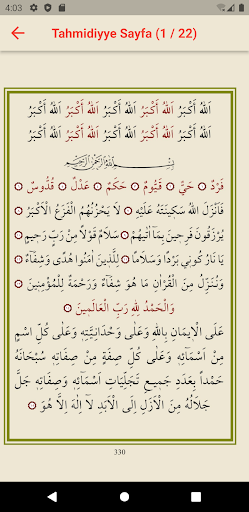 4:03
Tahmidiyye Sayfa (1 / 22)
اَللّٰهُ اَكْبَرُ اَللّٰهُ اَكْبَرُ اَللّٰهُ اَكْبَرُ اَللّٰهُ اَكْبَرُ اَللّٰهُ اَكْبَرُ
اَللّٰهُ اَكْبَرُ اَللّٰهُ اَكْبَرُ اَللّٰهُ اَكْبَرُ اَللّٰهُ اَكْبَرُ اَللّٰهُ اَكْبَرُ
بِسْمِ اللّٰهِ الرَّحْمٰنِ الرَّحِيمِ
فَرْدٌ ۞ حَيٌّ ۞ قَيُّومٌ ۞ حَكَمٌ ۞ عَدْلٌ ۞ قُدُّوسٌ ۞
فَاَنْزَلَ اللّٰهُ سَكِينَتَهُ عَلَيْهِ ۞ لَا يَحْزُنُهُمُ الْفَزَعُ الْاَكْبَرُ ۞
يُرْزَقُونَ فَرِحِينَ بِمَٓا اٰتٰيهُمْ ۞ سَلَامٌ قَوْلًا مِنْ رَبٍّ رَحِيمٍ ۞
يَا نَارُ كُونِي بَرْدًا وَسَلَامًا ۞ لِلَّذِينَ اٰمَنُوا هُدًى وَشِفَٓاءٌ ۞
وَنُنَزِّلُ مِنَ الْقُرْاٰنِ مَا هُوَ شِفَٓاءٌ وَرَحْمَةٌ لِلْمُؤْمِنِينَ ۞
وَالْحَمْدُ لِلّٰهِ رَبِّ الْعَالَمِينَ ۞
عَلَى الْاِيمَانِ بِاللّٰهِ وَعَلٰى وَحْدَانِيَّتِهِ وَعَلٰى كُلِّ اسْمٍ
مِنْ اَسْمَٓائِهِ وَعَلٰى كُلِّ صِفَةٍ مِنْ صِفَاتِهِ سُبْحَانَهُ
حَمْدًا بِعَدَدِ جَمِيعِ تَجَلِّيَاتِ اَسْمَٓائِهِ وَصِفَاتِهِ جَلَّ
جَلَالُهُ مِنَ الْاَزَلِ اِلَى الْاَبَدِ لَٓا اِلٰهَ اِلَّا هُوَ ۞
330